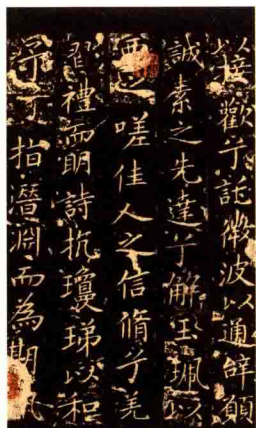 以接歡兮託微波以通辭願
誠素之先達兮解玉珮以
要之嗟佳人之信脩兮羌
習禮而明詩抗瓊珶以和
予兮指潛淵而為期